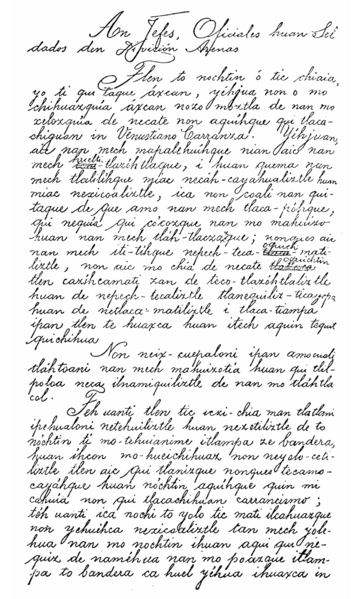 An Jefes, Oficiales huan Sol
dados den Division Arenas
Tlen to nochtin ó tic chiaia,
yo ti qui taque áxcan, yihjua non o mo
chihuazquia áxcan nozo moztla de nan mo
xelozquia de necate non aquihque qui tlaca-
chiguan in Venustiano Carranza. Yihjuan,
aic nan mech mapalehuihque nian aic nan
mech huelic tlazohtlaque, i huan quema nan
mech tlalilihque miac necah-cayahualiztle huan
miac nexicoaliztle, ica non coali nan qui-
taque de que amo nan mech tlaca-pohque,
qui nequia qui cocozque nan mo mahuizo-
huan nan mech tlah-tlaczazque; nonques aic
nan mech iti-tihque nepech-teca mati-
liztle, non aic mo chia de necate
tlen cazihcamati zan de teco-tlazohtlaliztle
huan de nepech-tecaliztle tlanequiliz-ticayopa
huan de netlaca-matiliztle i tlaca-tiampa
ipan tlen te huaxca huan itech aquin tequit
quichihua
Non neix-cuepaloni ipan amocualt
tlahtoani nan mech mahuizotia huan qui tlil-
poloa neca ilnamiquiliztle de nan mo tlahtla
col.
Teh uanti tlen tic ixxi-chia man tlatlani
ipehualoni netehuiliztle huan nexotiliztle de to
nochtin ti mo-tehuianime itlampa ze bandera,
huan ihcon mo-hueichihuaz non neyolo-ceti-
liztle tlen aic qui tlanizque nonques tecamo-
cayahque huan nochtin aquihque quin mi
cahuia non qui tlacachihuan carrancismo;
teh uanti ica nochi to yolo tic mati ilcahuazque
non yehuihca nexicoaliztle tan mech yole-
hua nan mo nochtin ihuan aqui que ne-
quiz de namihua nan mo poazque itlam-
pa to bandera ca huel yihua ihuaxca in